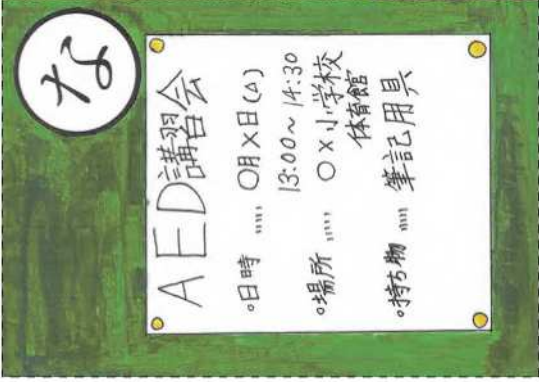 な
AED講習会
。日時 ..... 〇月×日(△)
13:00~14:30
。場所 ..... 〇×小学校
体育館
。持ち物 ..... 筆記用具